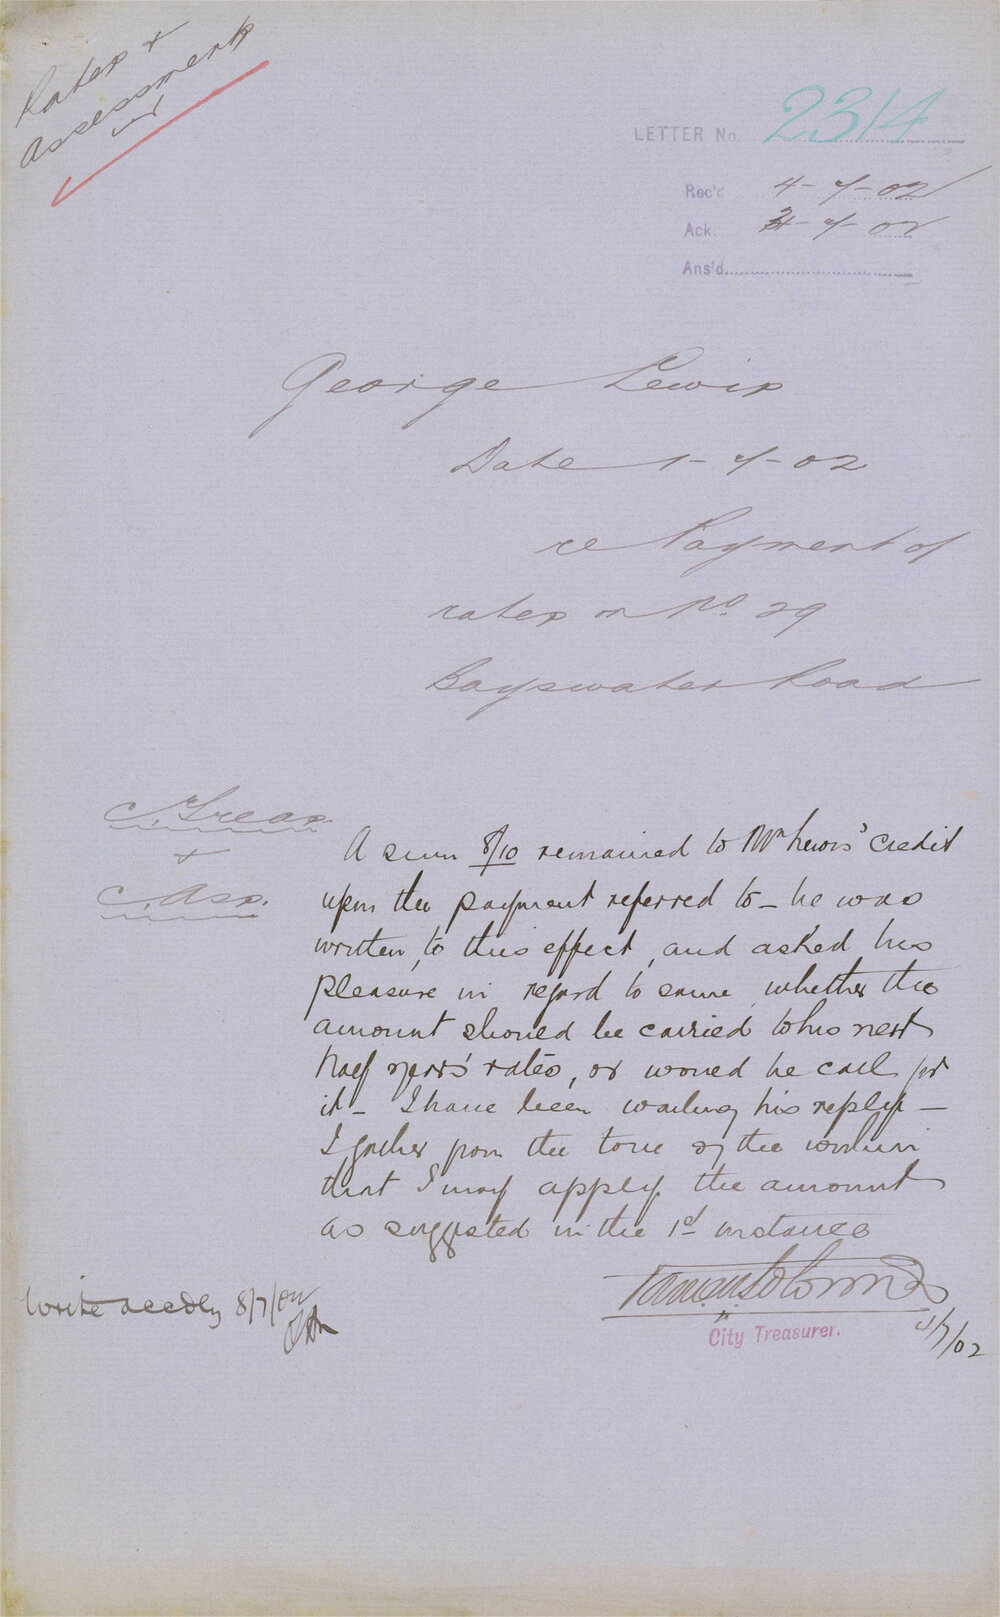 Rates &
Assessment
LETTER No. 2314
Rec'd 4-7-02
Ack. 4-7-02
Ans'd
George Lewis
Date 1-7-02
re Payment of
rates on No. 29
Bayswater Road
C. Treas.
&
C. Ass.
A sum 8/10 remained to Mr Lewis' credit
upon the payment referred to - he was
written, to this effect, and asked his
pleasure in regard to same whether the
amount should be carried to his next
half years' rates, or would he call for
it - I have been waiting his reply -
I gather from the tone of the
that I may apply the amount
as suggested in the 1st instance
City Treasurer.
4/7/02
Write accdly 8/7/02